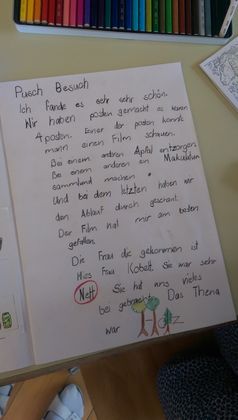 Pusch Besuch
Ich fande es sehr sehr schön.
Wir haben posten gemacht es waren
4 posten. Einer der posten konnte
mann einen Film schauen.
Bei einem anderen Apfal entzorgen.
Be einem anderen ein Makulatur
sammlund machen.
Und bei dem letzten haben wir
den Ablauf durch geschaut.
Der Film hat mir am besten
gefallen.
Die Frau die gekommen ist
Hies Frau Kobelt. Sie war sehr
Nett. Sie hat uns vieles
bei gebracht. Das Thema
war Holz